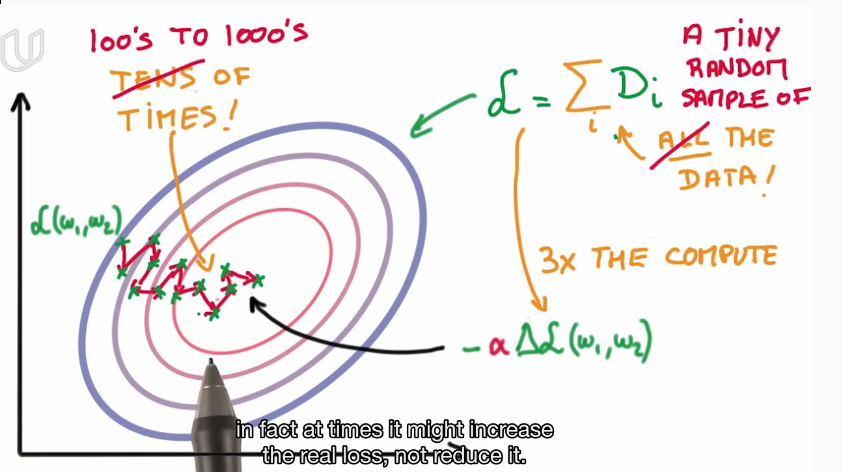 100'S TO 1000'S
TENS OF
TIMES!
A TINY
RANDOM
SAMPLE OF
ALL THE
DATA!
ℒ = Σ Dᵢ
i
ℒ(ω₁,ω₂)
3X THE COMPUTE
- α Δℒ(ω₁,ω₂)
in fact at times it might increase
the real loss, not reduce it.